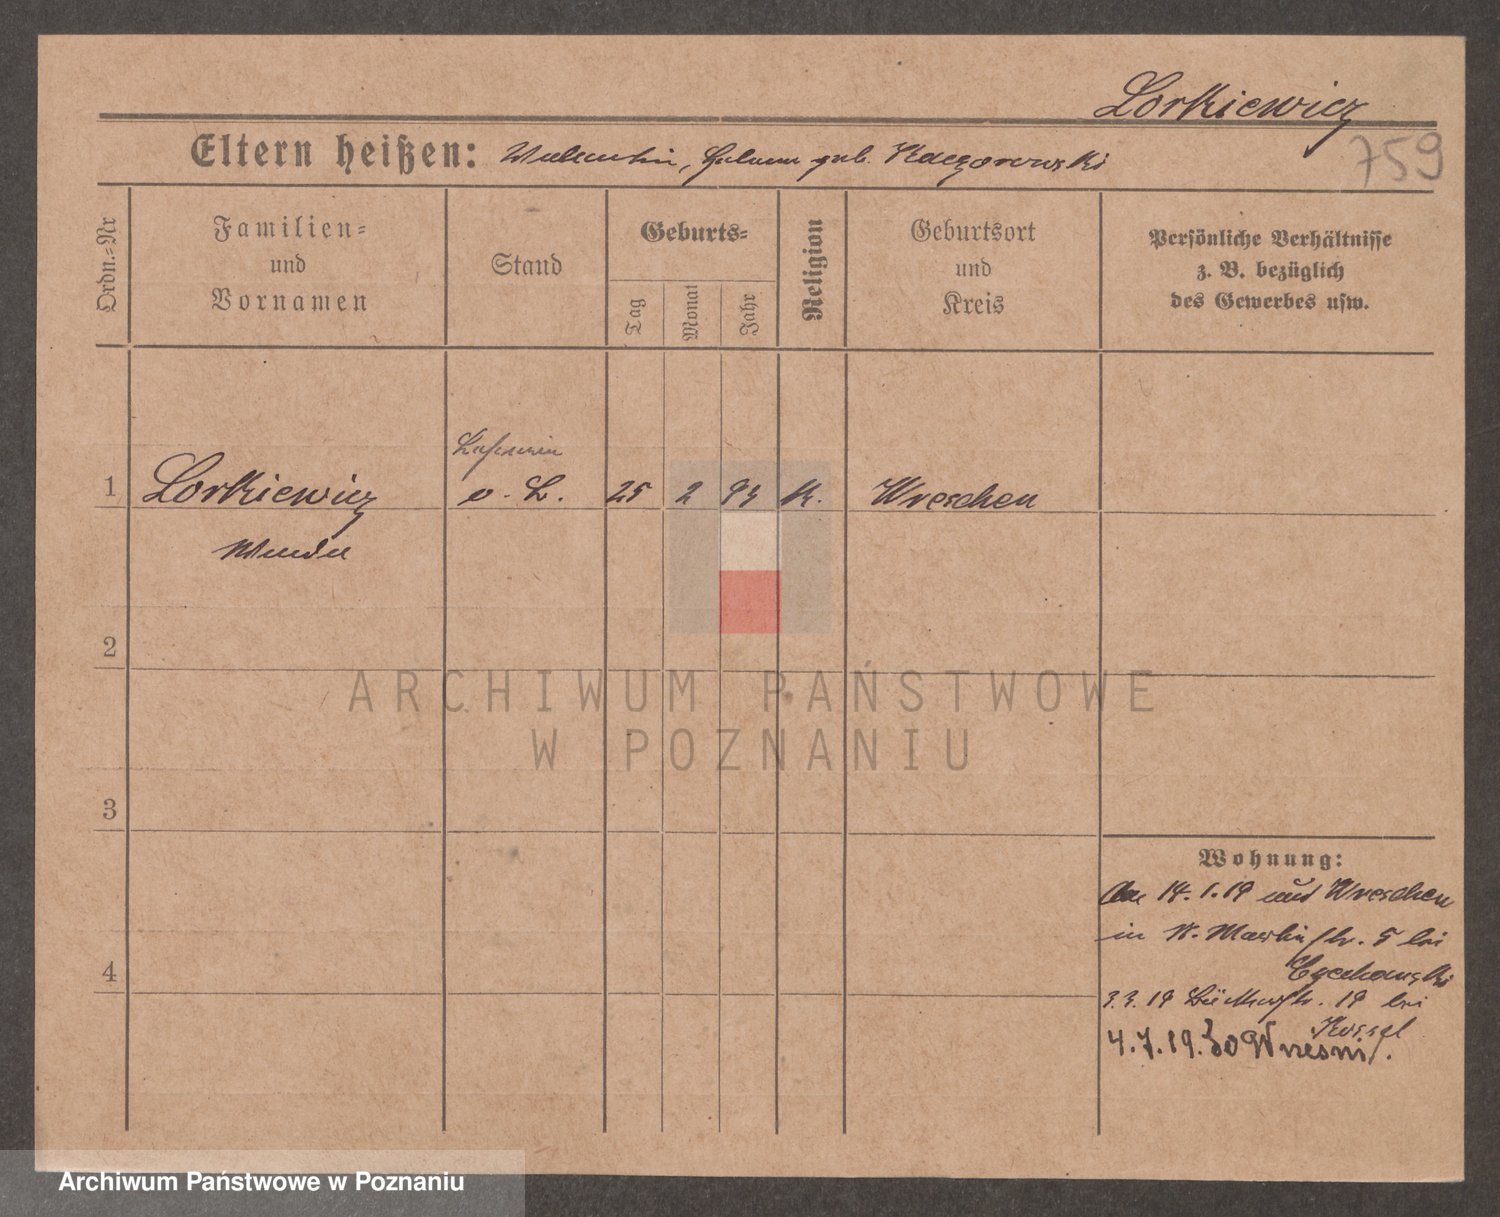 Lorkiewicz
759
Eltern heißen: Valentin, Helene geb. Kaczorowski
Ordn.-Nr
Familien-
und
Vornamen
Stand
Geburts-
Tag
Monat
Jahr
Religion
Geburtsort
und
Kreis
Persönliche Verhältnisse
z. B. bezüglich
des Gewerbes usw.
1
Lorkiewicz
Wanda
o. B.
25 2 93 k.
Wreschen
2
3
4
Wohnung:
14.1.19 aus Wreschen
in St. Martinstr. 5 bei
Czechowski
3.3.19 Bäckerstr. 19 bei
Kossel
4.7.19. do Wrześni.
ARCHIWUM PAŃSTWOWE
W POZNANIU
Archiwum Państwowe w Poznaniu